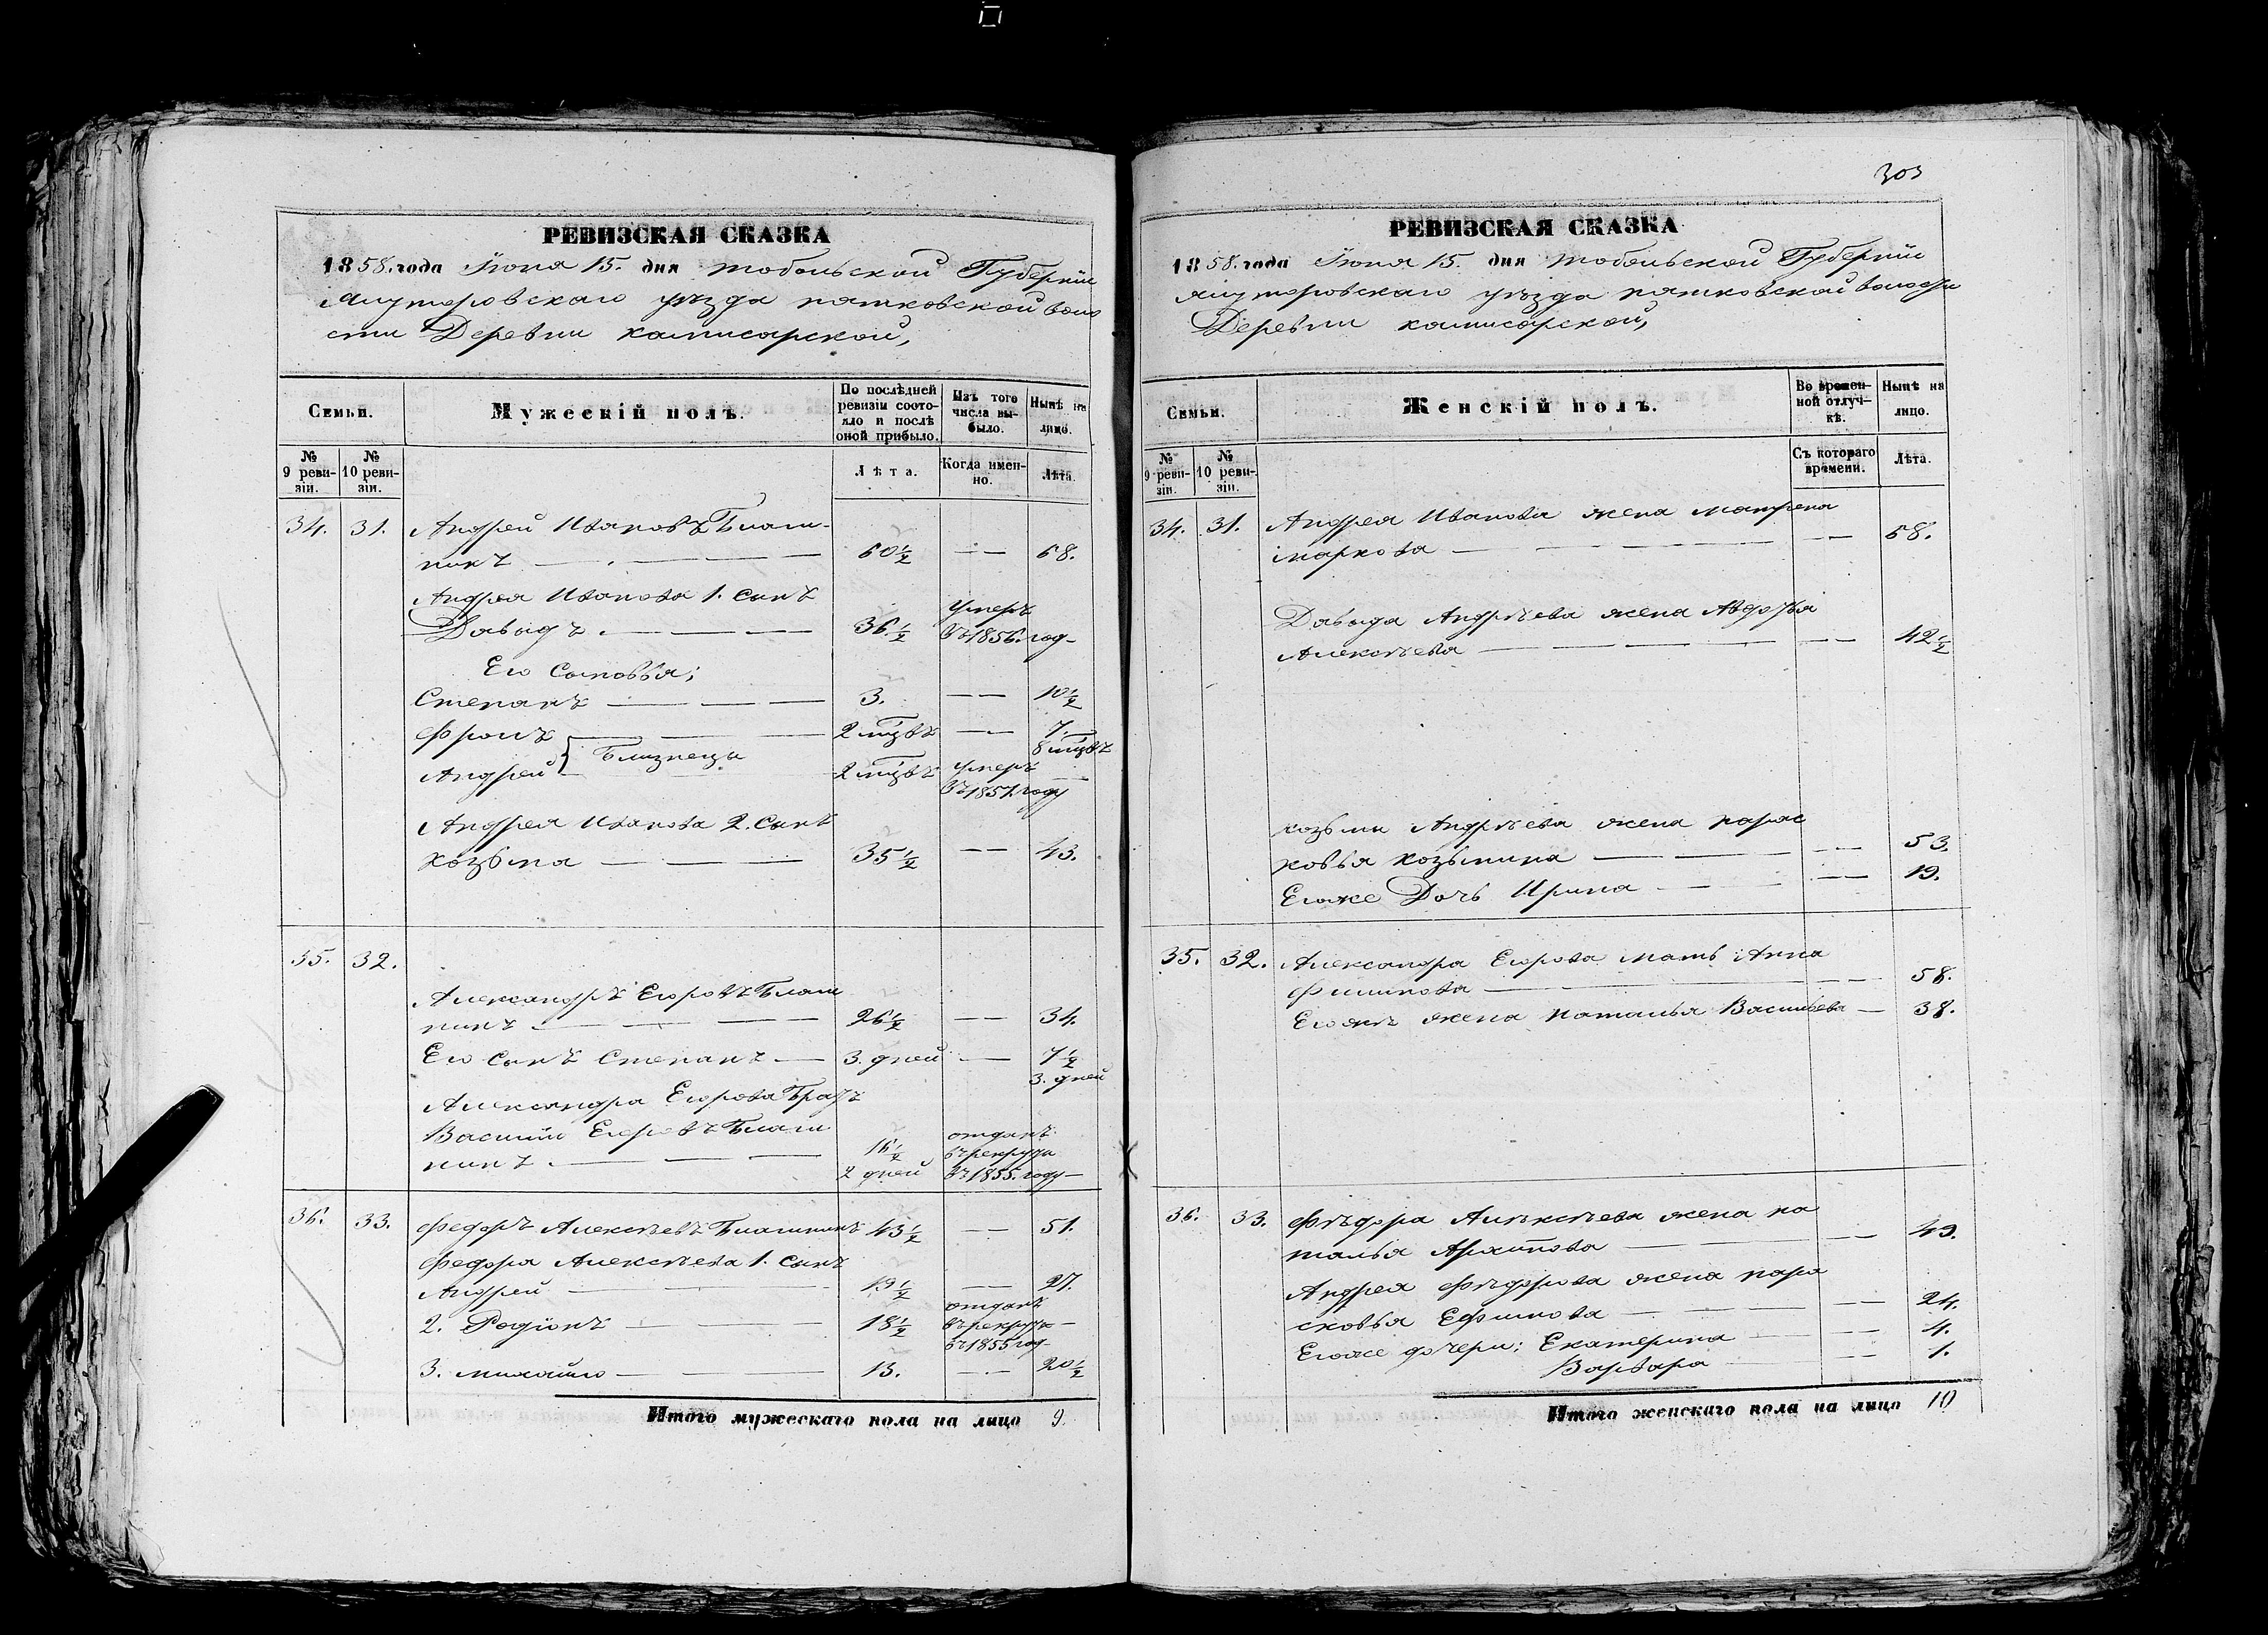 303
РЕВИЗСКАЯ СКАЗКА
1858. года Іюня 15. дня Тобольской Губерніи
Ялуторовскаго уѣзда пятковской воло
сти Деревни камисарской,
Семьи.
Мужескій полъ.
По послѣдней ревизіи состояло и послѣ оной прибыло.
Изъ того числа выбыло.
Нынѣ на лицо.
№ 9 ревизіи.
№ 10 ревизіи.
Лѣта.
Когда именно.
Лѣта.
34. 31. Андрей Ивановъ Блаш-
никъ 60½ — 68.
Андрея Иванова 1. сынъ
Давыдъ 36½ умеръ въ 1856. год
Его Сыновья;
Степанъ 3. — 10½
Фролъ 2 мцвъ — 7. 8 мцвъ
Близнецы
Андрей 2 мцвъ умеръ въ 1851. году
Андрея Иванова 2. сынъ
Козьма 35½ — 43.
35. 32.
Александръ Егоровъ Блаш
никъ 26½ — 34.
Его сынъ Степанъ 3. дней — 7½ 3. дней
Александра Егорова Братъ
Василий Егоровъ Блаш
никъ 16½ 2 дней отданъ въ рекруты въ 1855. году
36. 33. Федоръ Алексѣевъ Блашникъ 43½ — 51.
Федора Алексѣева 1. сынъ
Андрей 19½ — 27.
2. Родіонъ 18½ отданъ въ рекруты въ 1855 год
3. михайло 13. — 20½
Итого мужескаго пола на лицо 9.
РЕВИЗСКАЯ СКАЗКА
1858. года Іюня 15. дня Тобольской Губерніи
Ялуторовскаго уѣзда пятковской волости
Деревни камисарской,
Семьи.
Женскій полъ.
Во временной отлучкѣ.
Нынѣ на лицо.
№ 9 ревизіи.
№ 10 ревизіи.
Съ котораго времени.
Лѣта.
34. 31. Андрея Иванова жена матрена
маркова — 58.
Давыда Андрѣева жена Авдотья
Алексѣева — 42½
козьмы Андрѣева жена парас
ковья козьмина — 53.
Егоже Дочь Ирина — 19.
35. 32. Александра Егорова мать Анна
Филипова — 58.
Егожъ жена Наталья Васильева — 38.
36. 33. Фѣдора Алѣксѣева жена на
талья Архипова — 49.
Андрея Фѣдорова жена пара
сковья Ефимова — 24.
Егоже дочери: Екатерина — 4.
Варвара — 1.
Итого женскаго пола на лицо 10